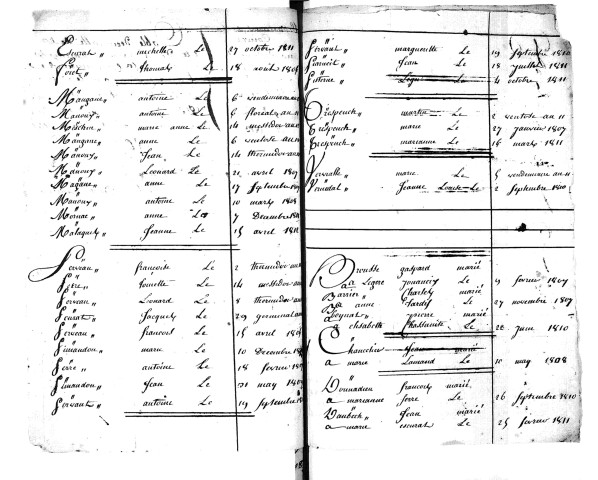 Esurat " michelle Le 27 octobre 1811
Foret " thomas Le 18 août 180
Mangane " antoine Le 6 vendemiaire an
Manoux " antoine Le 6 floréal an 11
marie anne Le 14 messidor an
Mangane " anne Le 6 ventose an 11
Manoux " Jean Le 14 thermidor an
Manoux " Leonard Le 21 avril 1807
Magane " anne Le 17 Septembre
Manoux " antoine Le 10 mars 1808
Mornac " anne Le 7 Decembre
Malaquety " Jeanne Le 15 avril 181
Serveau " françoise Le 2 thermidor an
Serre " Le 14 messidor an
Serveau " Lionard Le 8 thermidor an
Seurat " Jacques Le 29 germinal an
Serveau " francois Le 15 avril 180
Simandou " marie Le 10 Decembre
Serre " antoine Le 18 fevrier
Simandou " Jean Le 20 may 180
Servant " antoine Le 19 Septembre
Servant " marguerite Le 19 Septembre 1810
Jean Le 18 juillet 1811
Le 4 octobre 1811
Trespeuch " martin Le 2 ventose an 11
Trespeuch " marie Le 27 janvier 1807
Trespeuch " marianne Le 16 mars 1811
Versalle " marie Le 5 vendemiaire an 11
Jeanne Louise Le 2 Septembre 1810
Brousse gaspard marié
a Le 9 fevrier 1807
Barrier " Charles marié
a anne Tardif Le 27 novembre 1807
pierre marié
a Elisabeth Le 26 juin 1810
Chancelier Jean marié
a marie Lamaud Le 10 may 1808
Donnadieu francois marié
a marianne serre Le 26 Septembre 1810
Daubech " Jean marié
a marie esurat Le 25 fevrier 1811